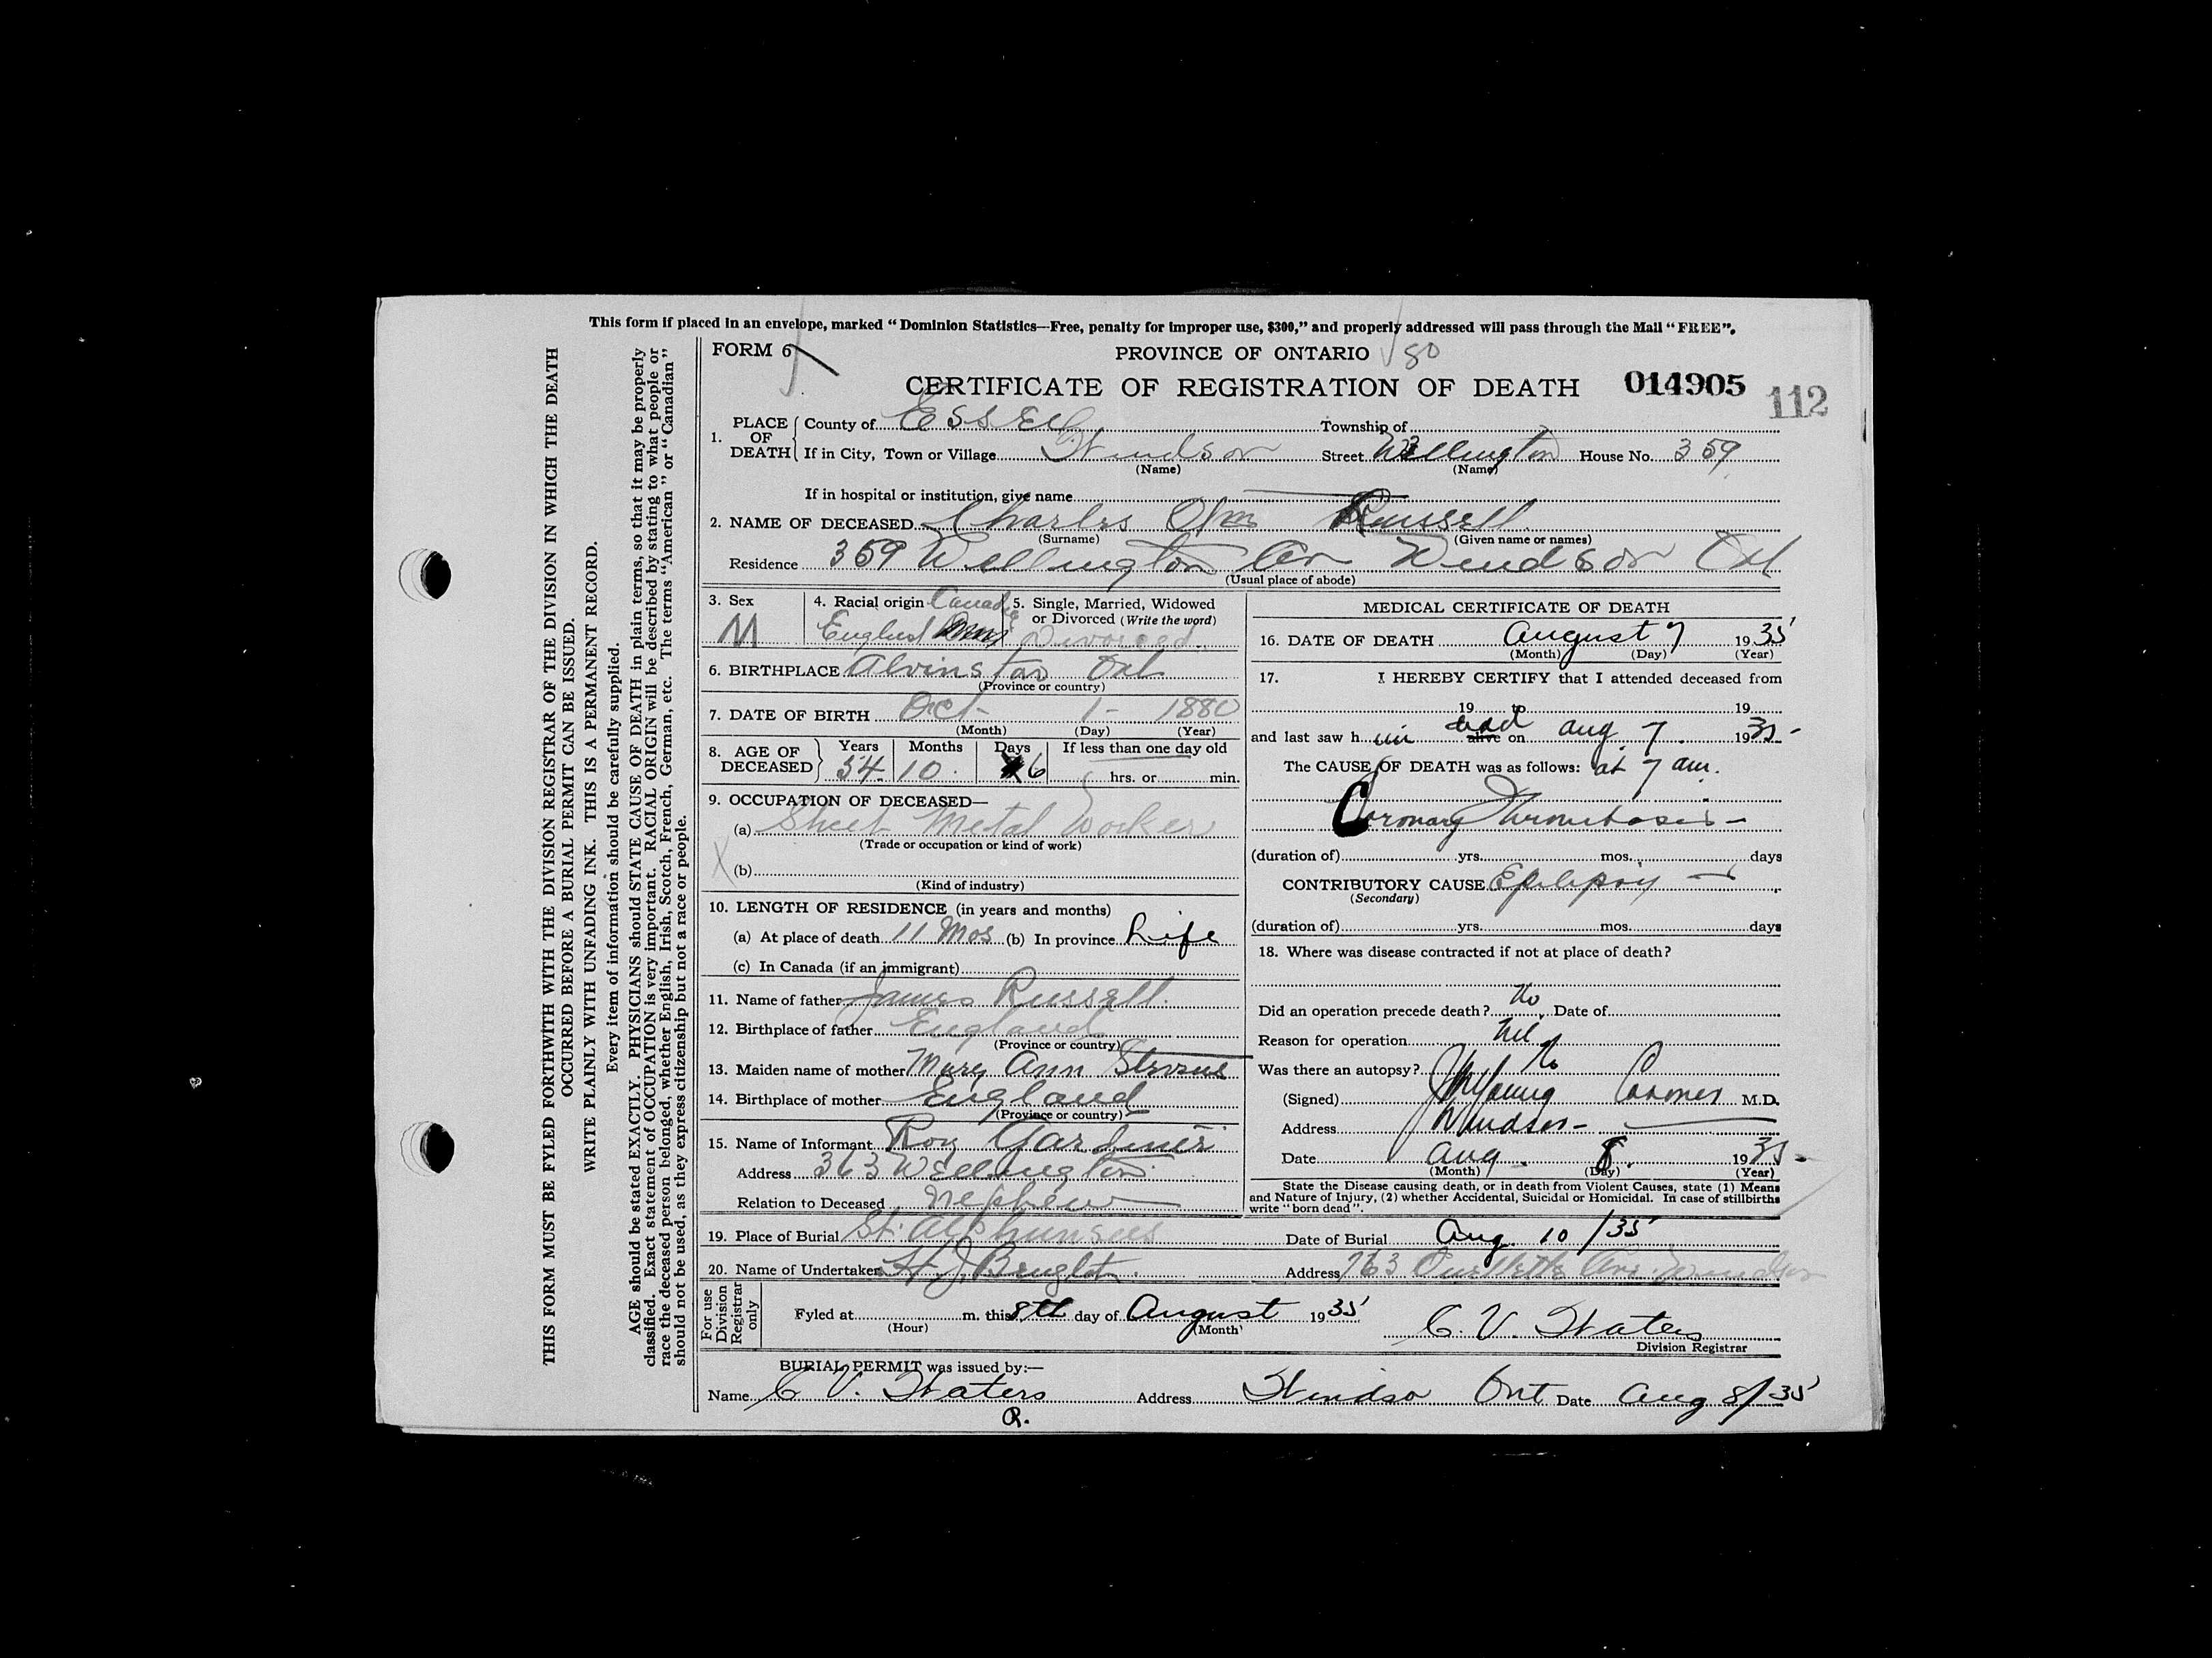 This form if placed in an envelope, marked “Dominion Statistics—Free, penalty for improper use, $300,” and properly addressed will pass through the Mail “FREE”.
THIS FORM MUST BE FYLED FORTHWITH WITH THE DIVISION REGISTRAR OF THE DIVISION IN WHICH THE DEATH
OCCURRED BEFORE A BURIAL PERMIT CAN BE ISSUED.
WRITE PLAINLY WITH UNFADING INK. THIS IS A PERMANENT RECORD.
Every item of information should be carefully supplied.
AGE should be stated EXACTLY. PHYSICIANS should STATE CAUSE OF DEATH in plain terms, so that it may be properly
classified. Exact statement of OCCUPATION is very important. RACIAL ORIGIN will be described by stating to what people or
race the deceased person belonged, whether English, Irish, Scotch, French, German, etc. The terms “American” or “Canadian”
should not be used, as they express citizenship but not a race or people.
FORM 6 PROVINCE OF ONTARIO 80
CERTIFICATE OF REGISTRATION OF DEATH 014905 112
1. PLACE OF DEATH County of Essex Township of
If in City, Town or Village Windsor Street Wellington House No. 359
(Name) (Name)
If in hospital or institution, give name
2. NAME OF DECEASED Charles Wm Russell
(Surname) (Given name or names)
Residence 359 Wellington Av Windsor Ont
(Usual place of abode)
3. Sex M
4. Racial origin English
5. Single, Married, Widowed
or Divorced (Write the word)
Divorced
6. BIRTHPLACE Alvinston Ont
(Province or country)
7. DATE OF BIRTH Oct - 1 - 1880
(Month) (Day) (Year)
8. AGE OF DECEASED Years Months Days If less than one day old
54 10 6 hrs. or min.
9. OCCUPATION OF DECEASED—
(a) Sheet Metal Worker
(Trade or occupation or kind of work)
(b)
(Kind of industry)
10. LENGTH OF RESIDENCE (in years and months)
(a) At place of death 11 Mos (b) In province Life
(c) In Canada (if an immigrant)
11. Name of father James Russell
12. Birthplace of father England
(Province or country)
13. Maiden name of mother Mary Ann Stevens
14. Birthplace of mother England
(Province or country)
15. Name of Informant Roy Gardiner
Address 363 Wellington
Relation to Deceased nephew
MEDICAL CERTIFICATE OF DEATH
16. DATE OF DEATH August 7 1935
(Month) (Day) (Year)
17. I HEREBY CERTIFY that I attended deceased from
19 to 19
and last saw h im dead alive on Aug. 7. 1935 -
The CAUSE OF DEATH was as follows: at 7 am.
Coronary Thrombosis -
(duration of) yrs. mos. days
CONTRIBUTORY CAUSE Epilepsy
(Secondary)
(duration of) yrs. mos. days
18. Where was disease contracted if not at place of death?
Did an operation precede death? No Date of
Reason for operation Nil
Was there an autopsy? No
(Signed) Young Coroner M.D.
Address Windsor -
Date Aug. 8. 1935 -
(Month) (Day) (Year)
State the Disease causing death, or in death from Violent Causes, state (1) Means
and Nature of Injury, (2) whether Accidental, Suicidal or Homicidal. In case of stillbirths
write “born dead”.
19. Place of Burial St. Alphunsus Date of Burial Aug. 10 /35
20. Name of Undertaker H J Address 763 Ouellette Ave. Windsor
For use Division Registrar only
Fyled at m. this 8th day of August 1935 C. V. Waters
(Hour) (Month) Division Registrar
BURIAL PERMIT was issued by:—
Name C. V. Waters Address Windsor Ont Date Aug 8/35
R.